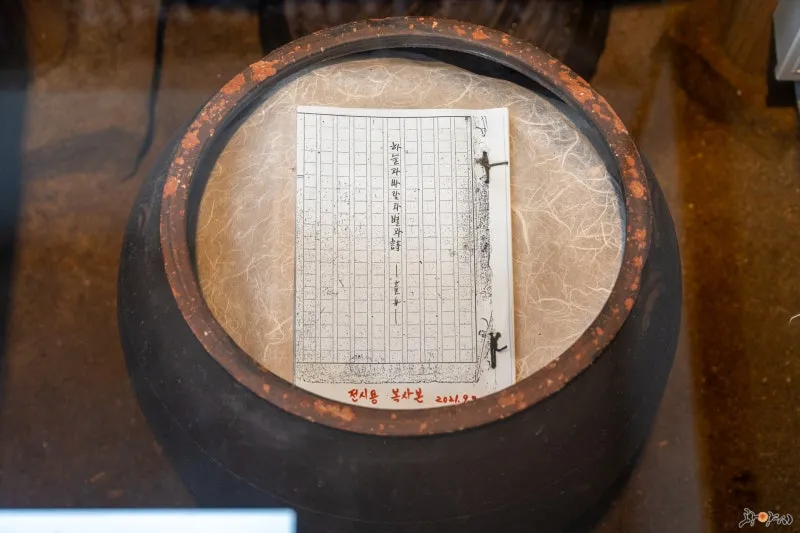 하늘과 바람과 별과 詩
전시용 복사본 2021.9.